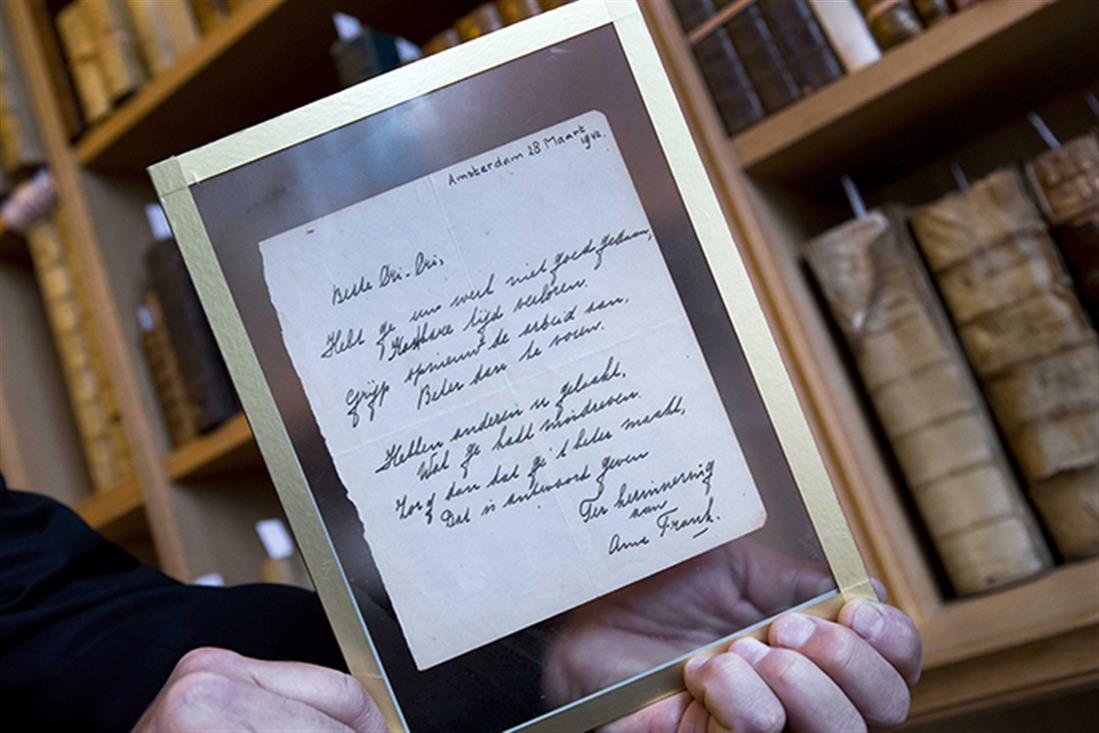 Amsterdam 28 Maart 1942.
Beste Cri-Cri,
Hebt ge uw werk niet goed gedaan,
Kostbare tijd verloren.
Grijp opnieuw de arbeid aan,
Beter dan te voren.
Hebben anderen u gelaakt,
Wat ge hadt misdreven.
Zorg dan dat ge 't beter maakt,
Dat is antwoord geven
Ter herinnering
van
Anne Frank.